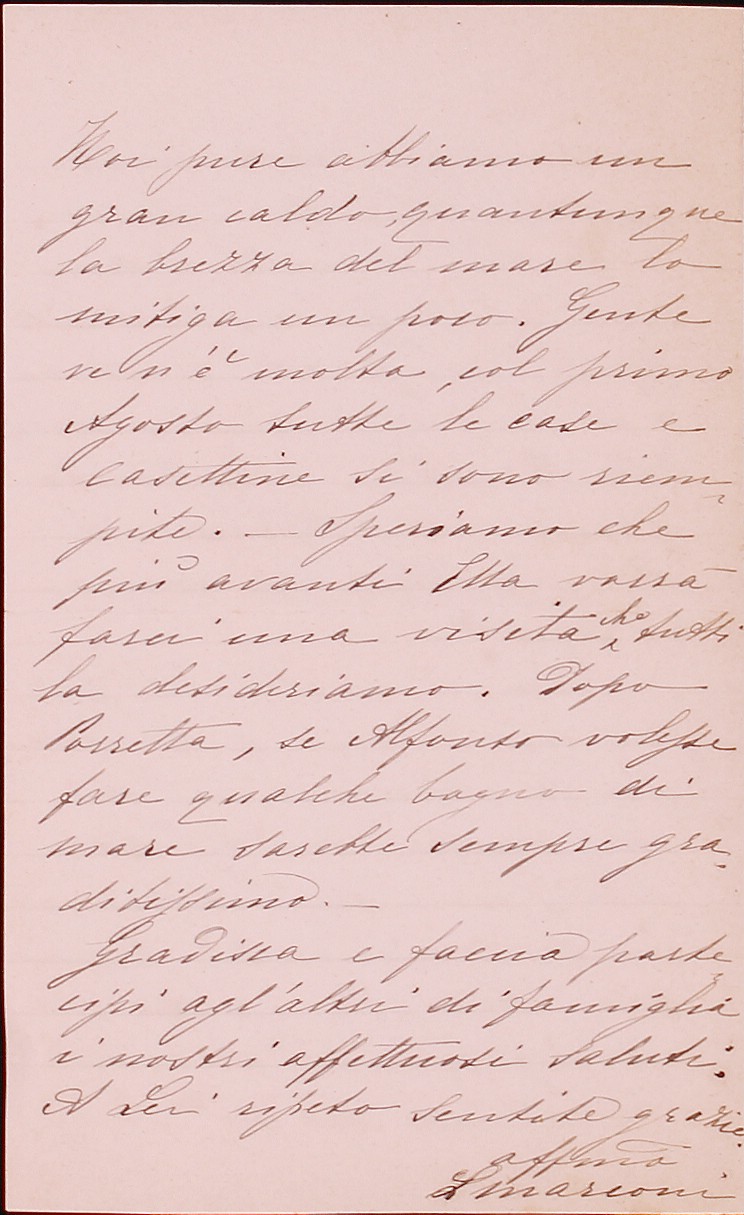 Noi pure abbiamo un
gran caldo, quantunque
la brezza del mare lo
mitiga un poco. Gente
ve n'è molta, col primo
Agosto tutte le case e
casettine si sono riem-
pite. — Speriamo che
più avanti Ella vorrà
farci una visita che tutti
la desideriamo. Dopo
Porretta, se Alfonso volesse
fare qualche bagno di
mare sarebbe sempre gra-
ditissimo. —
Gradisca e faccia parte-
cipi agl'altri di famiglia
i nostri affettuosi saluti.
A Lei ripeto sentite grazie.
affmo
LMarconi